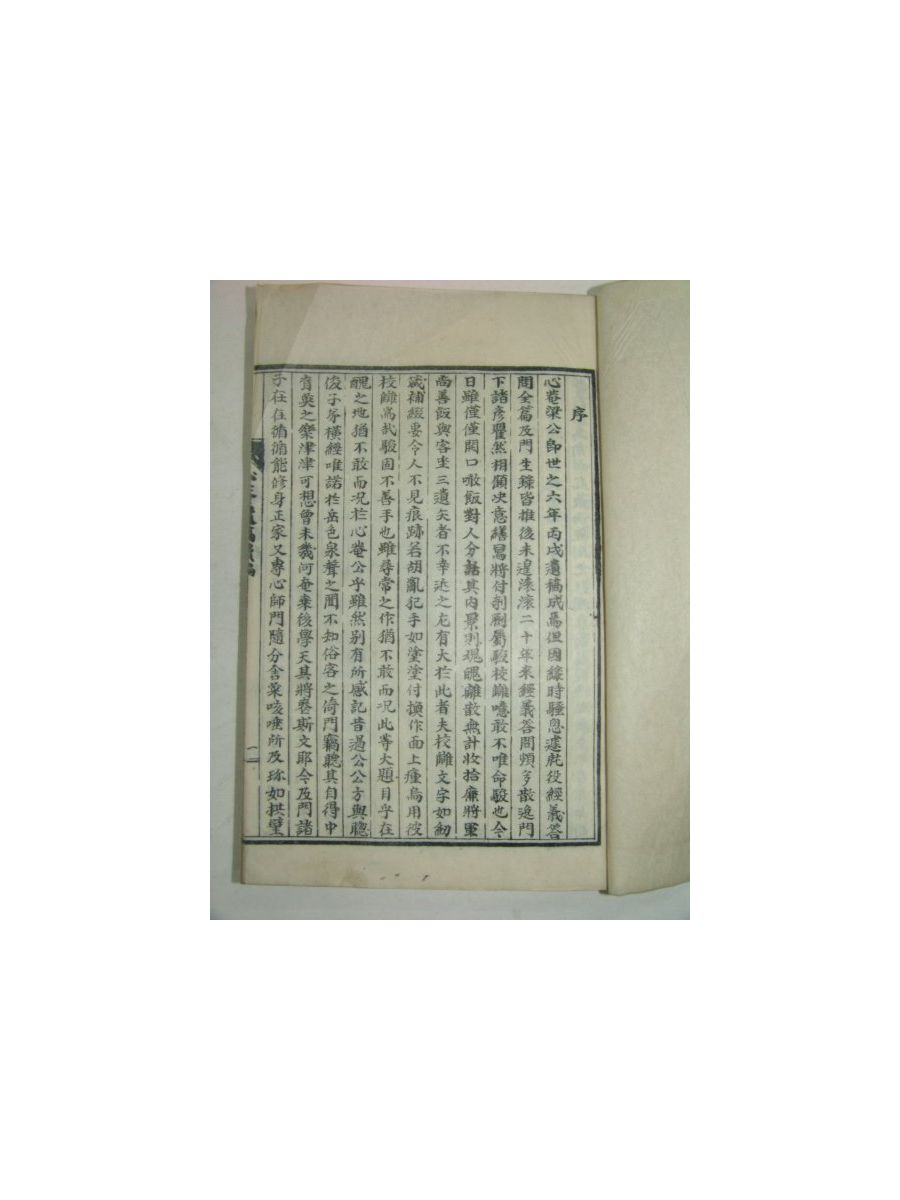 序
心菴梁公即世之六年丙戌遺稿成焉但因縁時騷悤遽庇役經義答
問全篇及門生錄皆推後未遑滾滾二十年来經義答問頻多散逸門
下諸彦瞿然相顧决意繕寫將付剞劂屬駿校讎噫敢不唯命駿也今
日雖僅僅開口喫飯對人分話其内景則魂魄離散無計收拾廉將軍
尚善飯與客坐三遺矢者不幸近之尤有大扵此者夫校讎文字如紉
箴補綴要令人不見痕跡若胡亂犯手如塗塗付換作面上瘇烏用彼
校讎爲哉駿固不善手也雖尋常之作猶不敢而况此等大題目乎在
醜之地猶不敢而况扵心菴公乎雖然别有所感記昔過公公方與聰
俊子弟橫經唯諾扵岳色泉聲之間不知俗客之倚門竊聽其自得中
育英之樂津津可想曾未幾何奄棄後學天其將喪斯文耶今及門諸
子在在循循能修身正家又專心師門隨分舍菜咳唾所及珎如拱璧
二